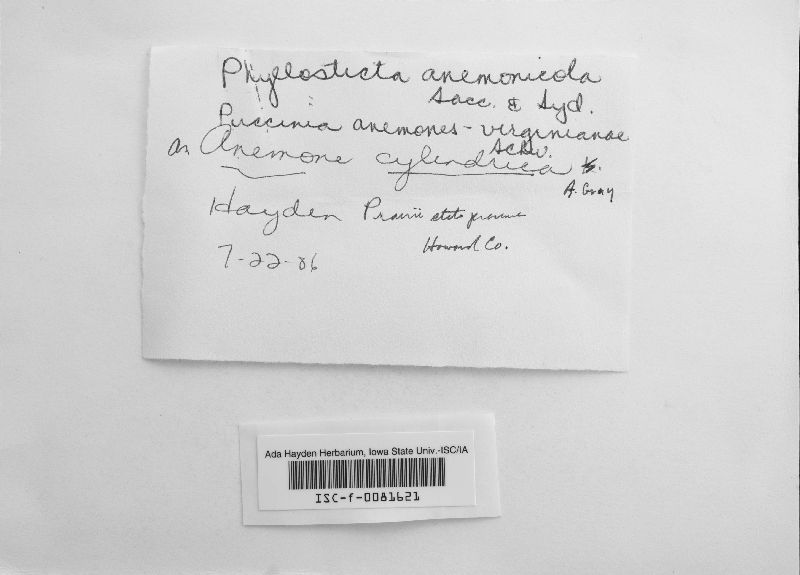 Phyllosticta anemonicola
Sacc. & Syd.
Puccinia anemones-virginianae
Schw.
on Anemone cylindrica
A. Gray
Hayden Prairie state preserve
Howard Co.
7-22-86
Ada Hayden Herbarium, Iowa State Univ.-ISC/IA
ISC-f-0081621